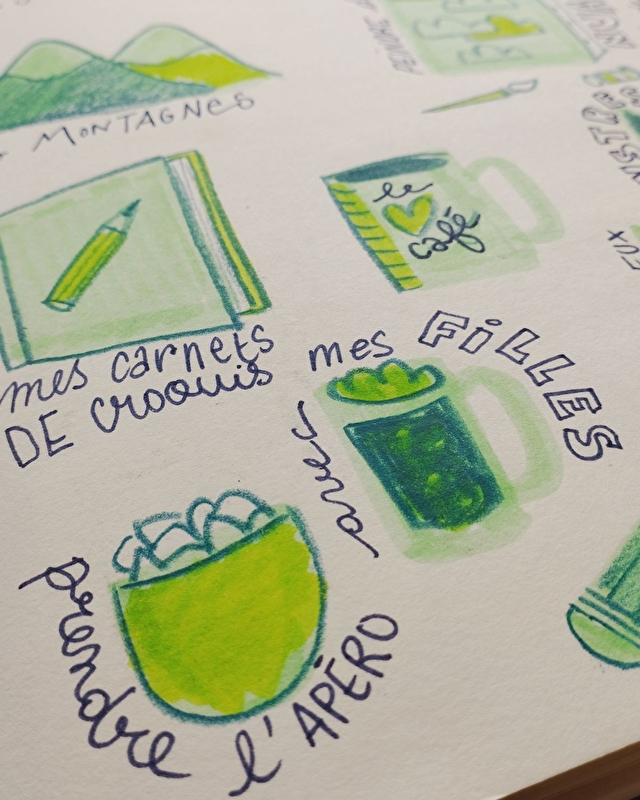 MONTAGNES
le
café
mes carnets
DE croquis
prendre l'APÉRO
avec mes FILLES